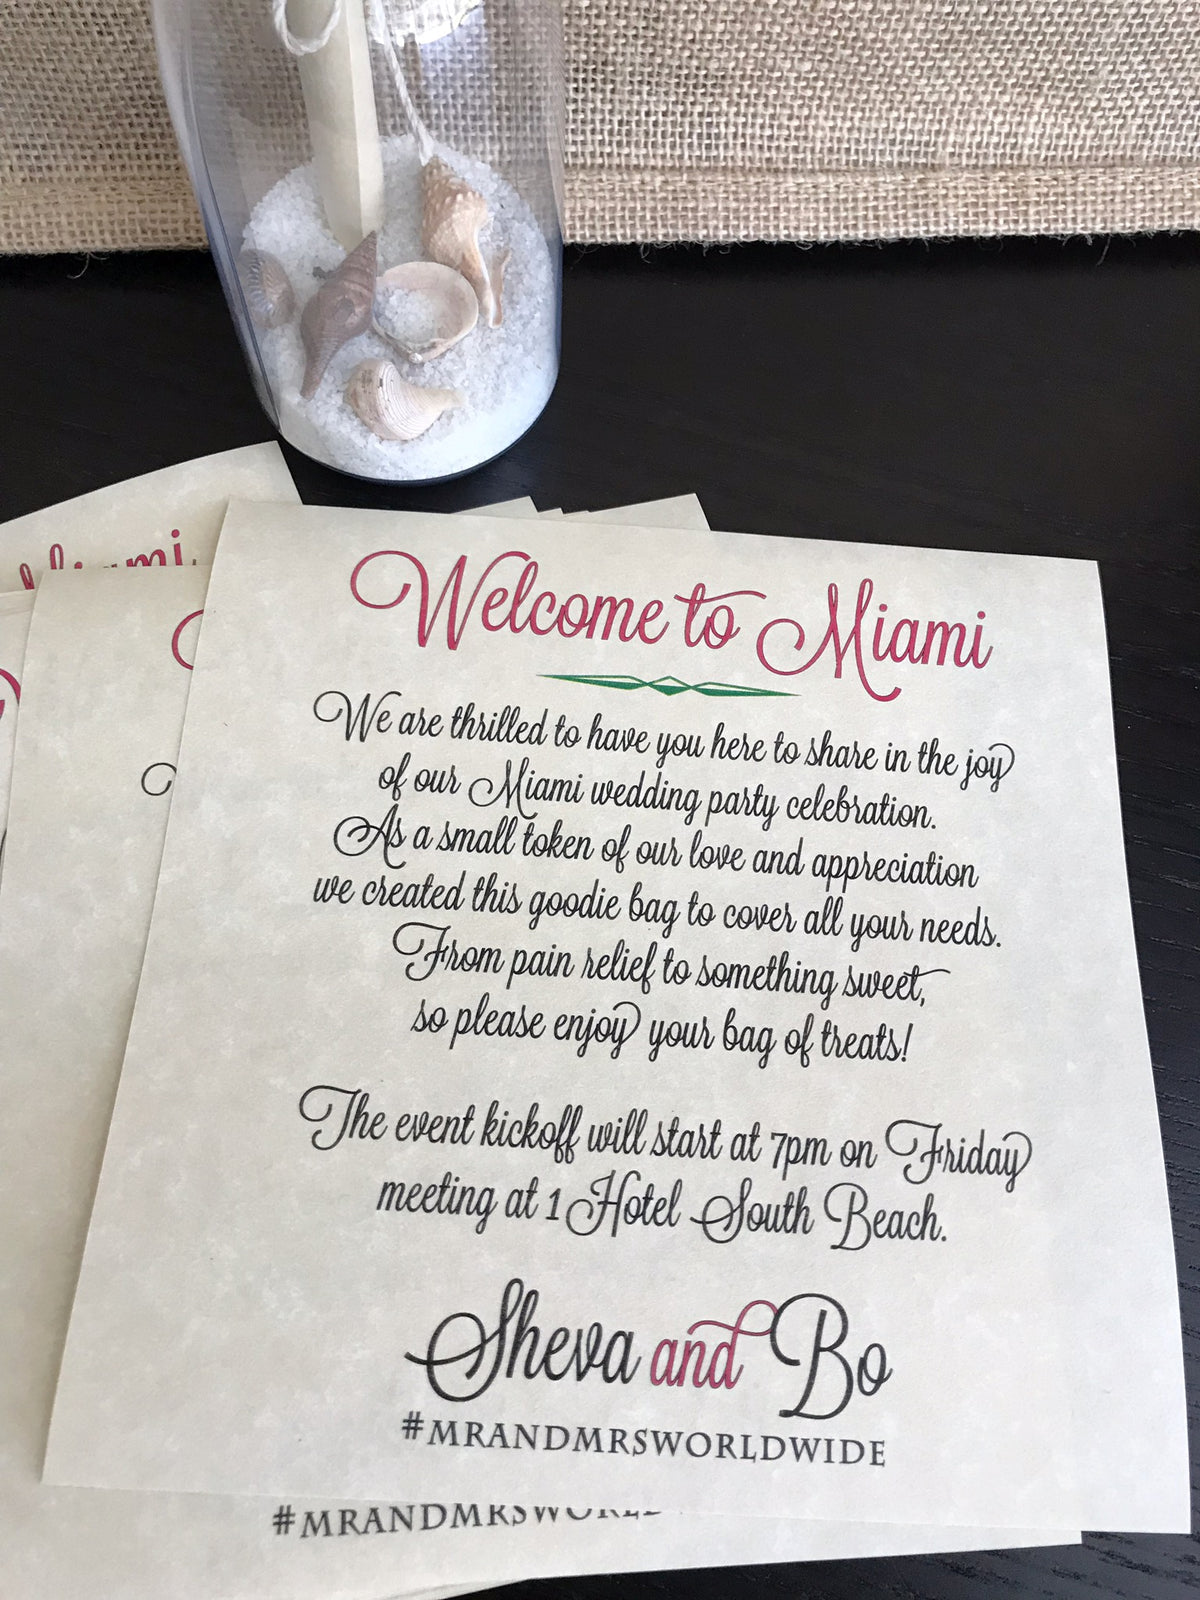 Welcome to Miami
We are thrilled to have you here to share in the joy
of our Miami wedding party celebration.
As a small token of our love and appreciation
we created this goodie bag to cover all your needs.
From pain relief to something sweet,
so please enjoy your bag of treats!
The event kickoff will start at 7pm on Friday
meeting at 1 Hotel South Beach.
Sheva and Bo
#MRANDMRSWORLDWIDE
Miami
#MRANDMRSWORL